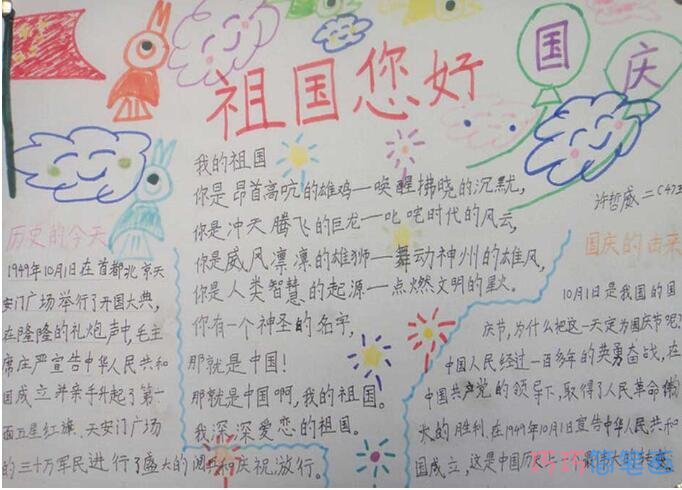 祖国您好
国庆
我的祖国
你是昂首高吭的雄鸡—唤醒拂晓的沉默,
你是冲天腾飞的巨龙—叱咤时代的风云,
你是威风凛凛的雄狮—舞动神州的雄风,
你是人类智慧的起源—点燃文明的星火。
你有一个神圣的名字,
那就是中国!
那就是中国啊,我的祖国。
我深深爱恋的祖国。
历史的今天
1949年10月1日在首都北京天
安门广场举行了开国大典,
在隆隆的礼炮声中,毛主
席庄严宣告中华人民共和
国成立并亲手升起了第一
面五星红旗、天安门广场
的三十万军民进行了盛大的阅兵和庆祝游行。
许哲威二(4)
国庆的由来
10月1日是我国的国
庆节,为什么把这一天定为国庆节呢?
中国人民经过一百多年的英勇奋战,在
中国共产党的领导下,取得了人民革命
的胜利、在1949年10月1日宣告中华人民共和
国成立,这是中国历史上一个最伟大的转变。
巧巧简笔画